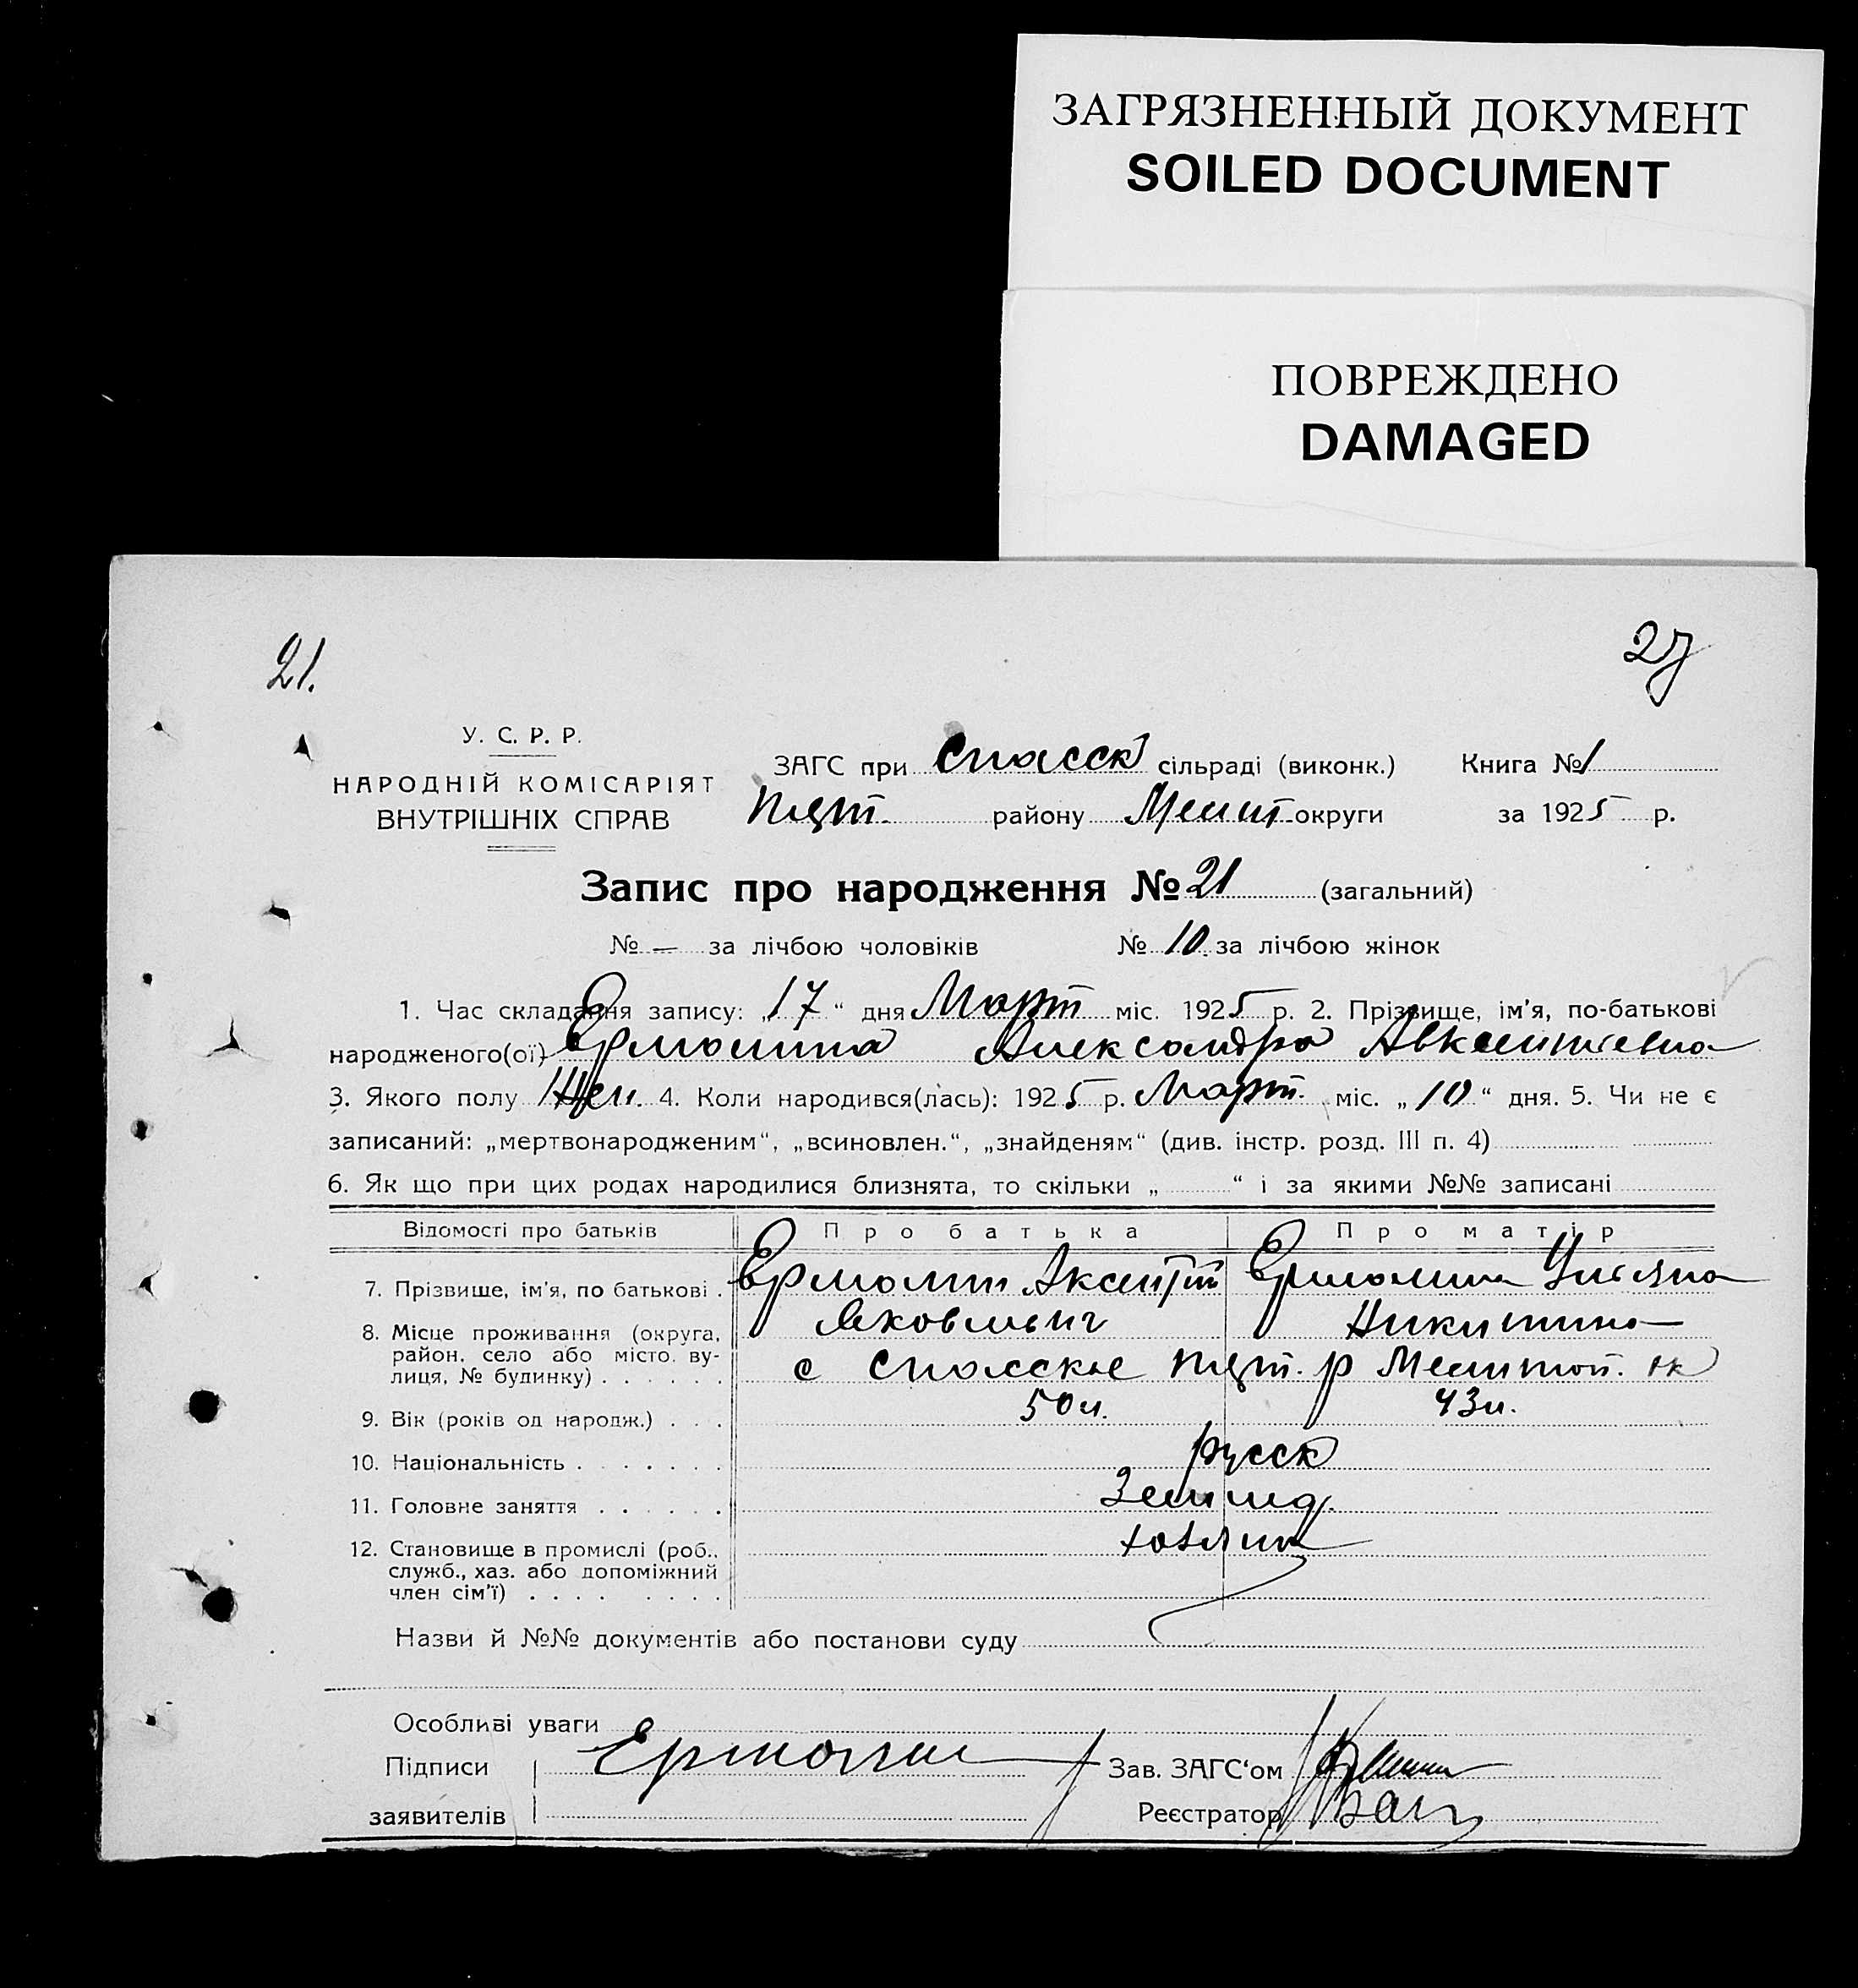 ЗАГРЯЗНЕННЫЙ ДОКУМЕНТ
SOILED DOCUMENT
ПОВРЕЖДЕНО
DAMAGED
21. 27
У. С. Р. Р.
НАРОДНІЙ КОМІСАРІЯТ
ВНУТРІШНІХ СПРАВ
ЗАГС при Спасск сільраді (виконк.) Книга №1
району Мелит округи за 1925 р.
Запис про народження № 21 (загальний)
№ — за лічбою чоловіків № 10. за лічбою жінок
1. Час складання запису: „17“ дня Март міс. 1925 р. 2. Прізвище, ім'я, по-батькові
народженого(ої) Ермолина Александра Авксентиевна
3. Якого полу Жен. 4. Коли народився(лась): 1925 р. Март. міс. „10“ дня. 5. Чи не є
записаний: „мертвонародженим“, „всиновлен.“, „знайденям“ (див. інстр. розд. III п. 4)
6. Як що при цих родах народилися близнята, то скільки „ “ і за якими №№ записані
Відомості про батьків Про батька Про матір
7. Прізвище, ім'я, по батькові . Ермолин Аксентий Ермолина Ульяна
Яковлевич Никитина
8. Місце проживання (округа,
район, село або місто, ву-
лиця, № будинку) . . . . . . с Спасское р Мелитоп. ок
9. Вік (років од народж.) . . . 50 л. 43 л.
10. Національність . . . . . . . русск
11. Головне заняття . . . . . . Землед.
12. Становище в промислі (роб.,
служб., хаз. або допоміжний
член сім'ї) . . . . . . . . хозяин
Назви й №№ документів або постанови суду
Особливі уваги
Підписи Ермолин Зав. ЗАГС'ом
заявителів Реєстратор